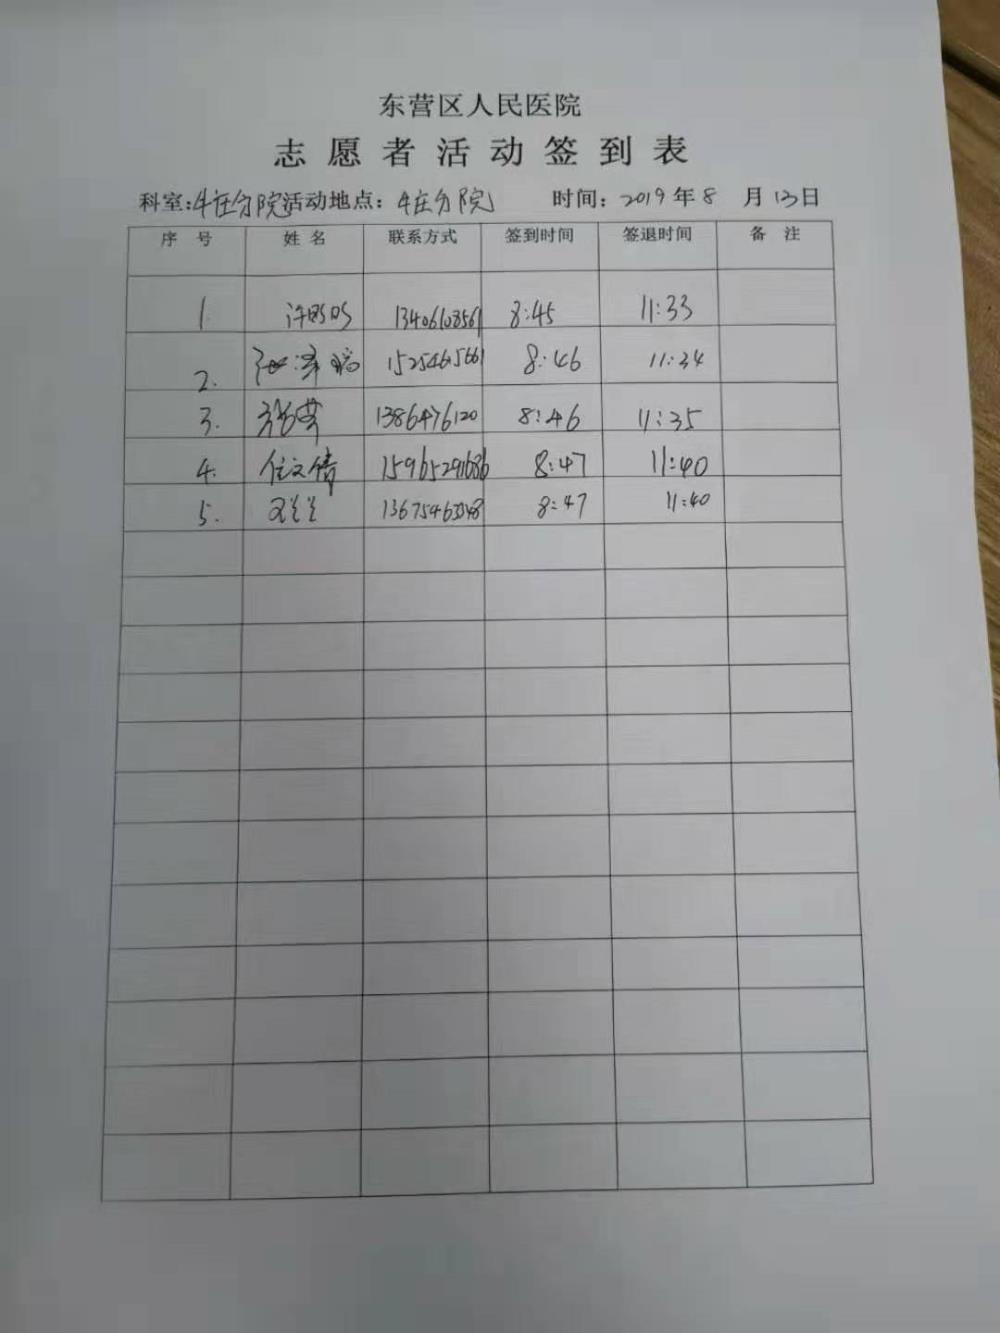 东营区人民医院
志愿者活动签到表
科室:牛庄分院 活动地点:牛庄分院 时间:2019年8月13日
序号 姓名 联系方式 签到时间 签退时间 备注
1. 许明明 13406108561 8:45 11:33
2. 15254615661 8:46 11:34
3. 1386476120 8:46 11:35
4. 任文倩 15965291686 8:47 11:40
5. 8:47 11:40